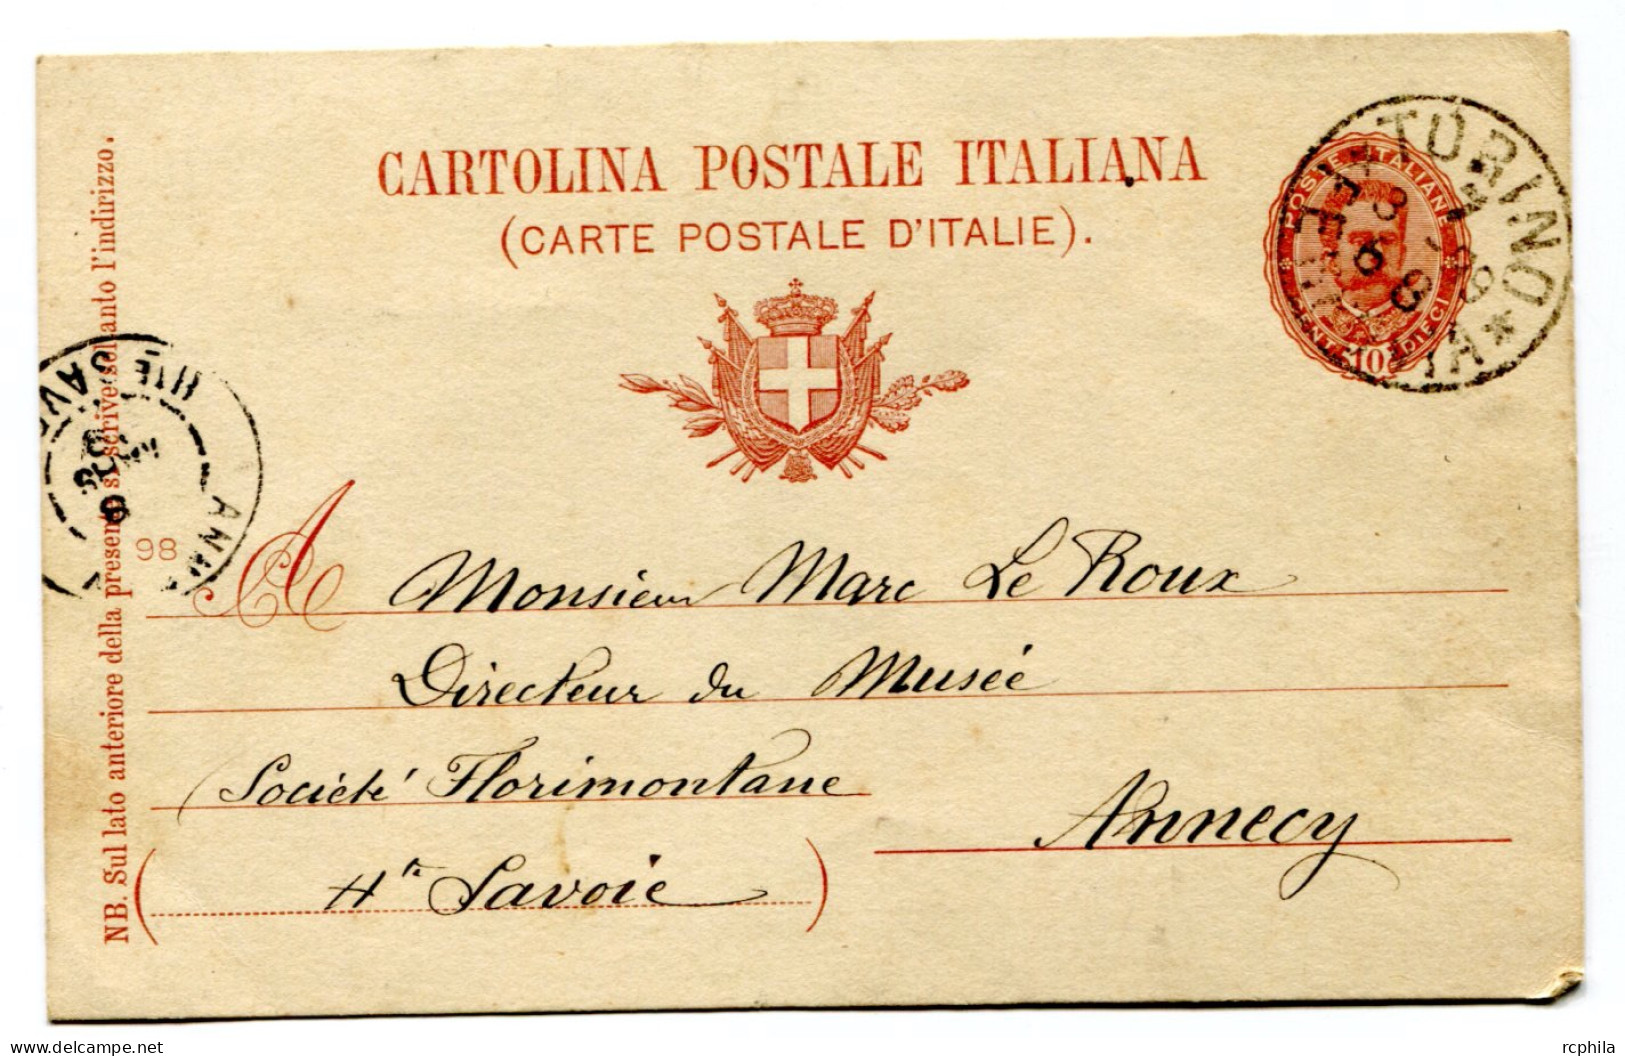 CARTOLINA POSTALE ITALIANA
(CARTE POSTALE D'ITALIE).
POSTE ITALIANE
10
DIECI
TORINO
FERROVIA
NB. Sul lato anteriore della presente si scrive soltanto l'indirizzo.
98
A Monsieur Marc Le Roux
Directeur du Musée
Société Florimontane
Annecy
(Hte Savoie)
Delcampe.net
rcphila